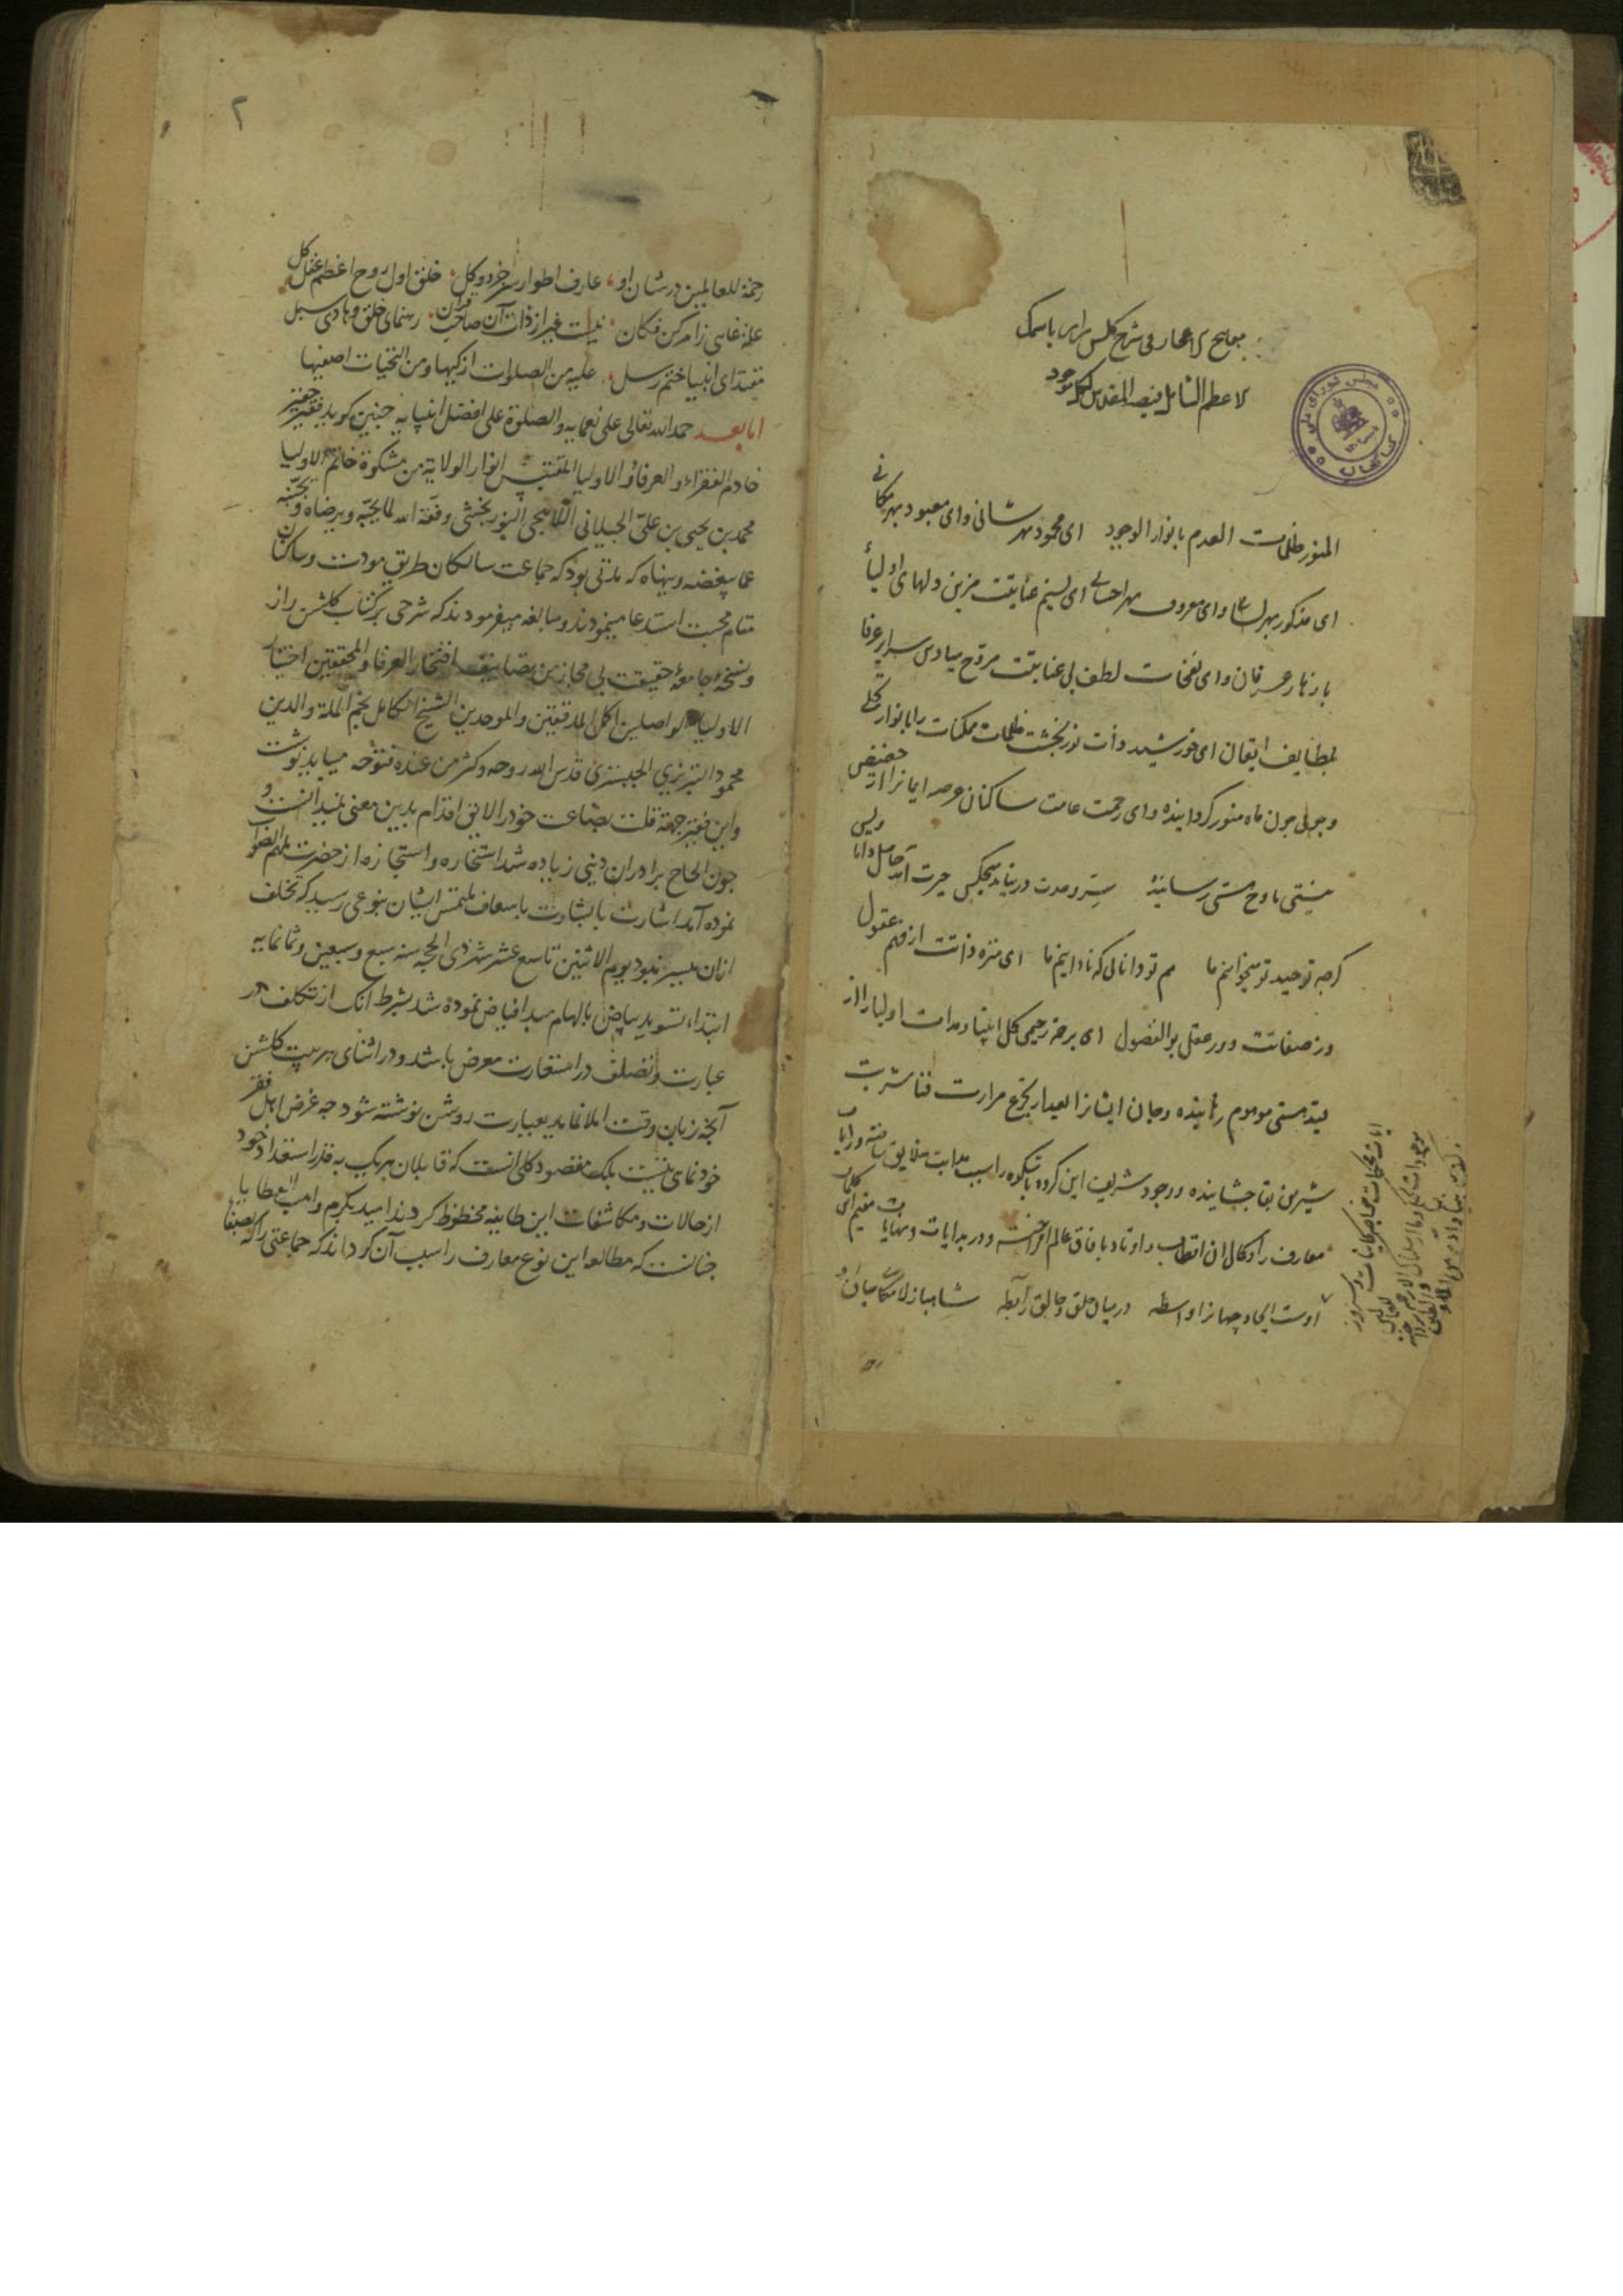 مفاتیح الاعجاز فی شرح کلشن راز باسمک
الاعظم الشامل فیضه المقدس لکل موجود
المنور ظلمات العدم بانوار الوجود ای محمود بهر شانی و ای معبود بهر مکانی
ای مذکور بهر لسا و ای معروف بهر احسانی ای نسیم عنایتت مزین دلهای اولیا
بازهار عرفان و ای نفحات لطف بی غایتت مروح میادین سرایر عرفا
بلطایف ایقان ای خورشید ذات نوربخشت ظلمات ممکنات را بانوار تجلی
وجهی چون ماه منور کردانیده و ای رحمت عامت ساکنان عرصه ایمانرا از حضیض
نیستی باوج هستی رسانیده سر وحدت درنیابد هیچکس حیرت آمد حاصل دانا و بس
کرچه توحید تو میخوانیم ما هم تو دانایی که نادانیم ما ای منزه ذاتت از فهم عقول
وز صفاتت دور عقل بوالفضول ای برحمت رحیمی کمل انبیا و هدات اولیا را از
قید هستی موهوم رهانیده و جان ایشانرا بعد از تجرع مرارت فنا شربت
شیرین بقا چشانیده و وجود شریف این کروه باشکوه را سبب هدایت خلایق ساخته و رایات
معارف را و کمالات اقطاب و اوتاد بافاق عالم افراخته و در بدایات و نهایات
اوست ایجاد جهانرا واسطه در میان خلق و خالق رابطه شاهباز لامکانی جان او
۲
رحمة للعالمین در شان او عارف اطوار سر جزو و کل خلق اول روح اعظم عقل کل
علة غایی ز امر کن فکان نیست غیر از ذات آن صاحب قران رهنمای خلق و هادی سبل
مقتدای انبیا ختم رسل علیه من الصلوات ازکیها و من التحیات اصفیها
اما بعد حمد الله تعالی علی نعمایه والصلوة علی افضل انبیایه چنین کوید فقیر حقیر
خادم الفقراء و العرفاء و الاولیا المقتبس انوار الولایة من مشکوة خاتم الاولیا
محمد بن یحیی بن علی الجیلانی اللاهیجی النوربخشی وفقه الله لما یحبه و یرضاه و یجنبه
عما یبغضه وینهاه که مدتی بود که جماعت سالکان طریق مودت و ساکنان
مقام محبت استدعا مینمودند و مبالغه میفرمودند که شرحی بر کتاب کلشن راز
و نسخهٔ جامعهٔ حقیقت بی مجاز من تصانیف افتخار العرفا و المحققین اختیار
الاولیا الواصلین اکمل المدققین و الموحدین الشیخ الکامل نجم الملة والدین
محمود التبریزی الجبستری قدس الله روحه و کثر من عنده فتوحه میباید نوشت
و این فقیر جهة قلت بضاعت خود را لایق اقدام بدین معنی نمیدانست و
چون الحاح برادران دینی زیاده شد استخاره و استجازه از حضرت ملهم الصواب
نموده آمد اشارت با بشارت باسعاف ملتمس ایشان بنوعی رسید که تخلف
ازان میسر نبود یوم الاثنین تاسع عشر شهر ذی الحجه سنه سبع و سبعین و ثمانمایه
ابتداء تسوید بیاض بالهام مبدا فیاض نموده شد بشرط آنک از تکلف در
عبارت و تصلف در استعارت معرض باشد و در اثنای هر بیت کلشن
آنچه زبان وقت املا نماید بعبارت روشن نوشته شود چه غرض اهل فقر
خودنمای نیست بلک مقصود کلی انست که قابلان هر یک به قدر استعداد خود
از حالات و مکاشفات این طایفه محظوظ کردند امید بکرم واهب العطایا
چنانست که مطالعه این نوع معارف را سبب آن کرداند که جماعتی را که بصفا